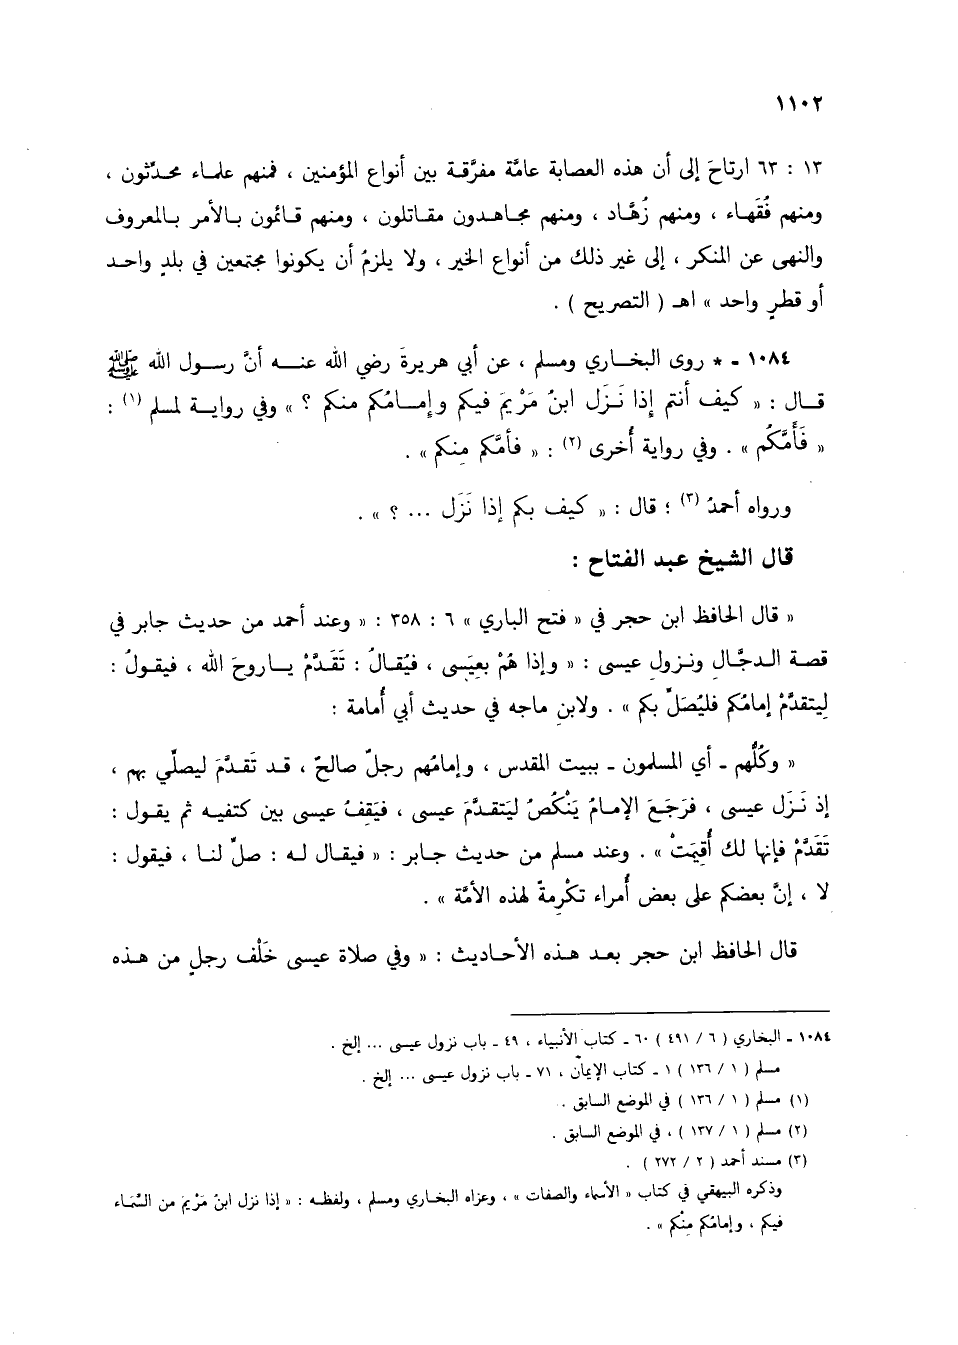 ١١٠٢
١٣ : ٦٣ ارتاحَ إلى أن هذه العصابة عامَّة مفرَّقة بين أنواع المؤمنين ، فمنهم علماء محدِّثون ،
ومنهم فُقَهاء ، ومنهم زُهَّاد ، ومنهم مجاهدون مقاتلون ، ومنهم قائمون بالأمر بالمعروف
والنهى عن المنكر ، إلى غير ذلك من أنواع الخير ، ولا يلزمُ أن يكونوا مجتمعين في بلدٍ واحد
أو قطرٍ واحد » اهـ ( التصريح ) .
١٠٨٤ - * روى البخاري ومسلم ، عن أبي هريرةَ رضي الله عنه أنَّ رسول الله ﷺ
قال : « كيف أنتم إذا نَزَل ابنُ مَرْيم فيكم وإمامُكم منكم ؟ » وفي رواية لمسلم (١) :
« فَأَمَّكُم » . وفي رواية أخرى (٢) : « فأمَّكم مِنكم » .
ورواه أحمدُ (٣) ؛ قال : « كيف بكم إذا نَزَل ... ؟ » .
قال الشيخ عبد الفتاح :
« قال الحافظ ابن حجر في « فتح الباري » ٦ : ٣٥٨ : « وعند أحمد من حديث جابر في
قصة الدجَّالِ ونزولِ عيسى : « وإذا هُمْ بعِيَسى ، فيُقالُ : تَقَدَّمْ ياروحَ الله ، فيقولُ :
لِيتقدَّمْ إمامُكم فليُصَلِّ بكم » . ولابنِ ماجه في حديث أبي أُمامة :
« وكُلُّهم - أي المسلمون - ببيت المقدس ، وإمامُهم رجلٌ صالحٌ ، قد تَقدَّمَ ليصلّي بهم ،
إذ نَزَل عيسى ، فرَجَعَ الإمامُ يَنْكُصُ ليَتقدَّمَ عيسى ، فيَقِفُ عيسى بين كتفيه ثم يقول :
تَقَدَّمْ فإنها لك أُقِيمَتْ » . وعند مسلم من حديث جابر : « فيقال له : صلِّ لنا ، فيقول :
لا ، إنَّ بعضكم على بعض أُمراء تكْرِمةً لهذه الأمَّة » .
قال الحافظ ابن حجر بعد هذه الأحاديث : « وفي صلاة عيسى خَلْف رجلٍ من هذه
١٠٨٤ - البخاري ( ٦ / ٤٩١ ) ٦٠ - كتاب الأنبياء ، ٤٩ - باب نزول عيسى ... إلخ .
مسلم ( ١ / ١٣٦ ) ١ - كتاب الإيمان ، ٧١ - باب نزول عيسى ... إلخ .
(١) مسلم ( ١ / ١٣٦ ) في الموضع السابق .
(٢) مسلم ( ١ / ١٣٧ ) ، في الموضع السابق .
(٣) مسند أحمد ( ٢ / ٢٧٢ ) .
وذكره البيهقي في كتاب « الأسماء والصفات » ، وعزاه البخاري ومسلم ، ولفظه : « إذا نزل ابنُ مَرْيم من السَّماء
فيكم ، وإمامُكم مِنْكم » .